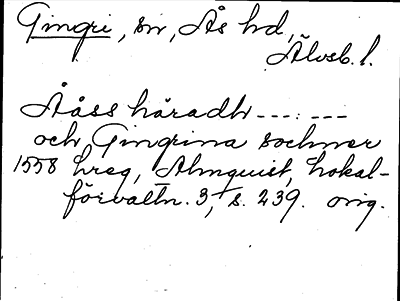 Gingri, sn, Ås hd,
Älvsb. l.
Ååss häradh ---:---
och Gingrina sochner
1558 hreg, Almquist, Lokal-
förvaltn. 3, s. 239. orig.